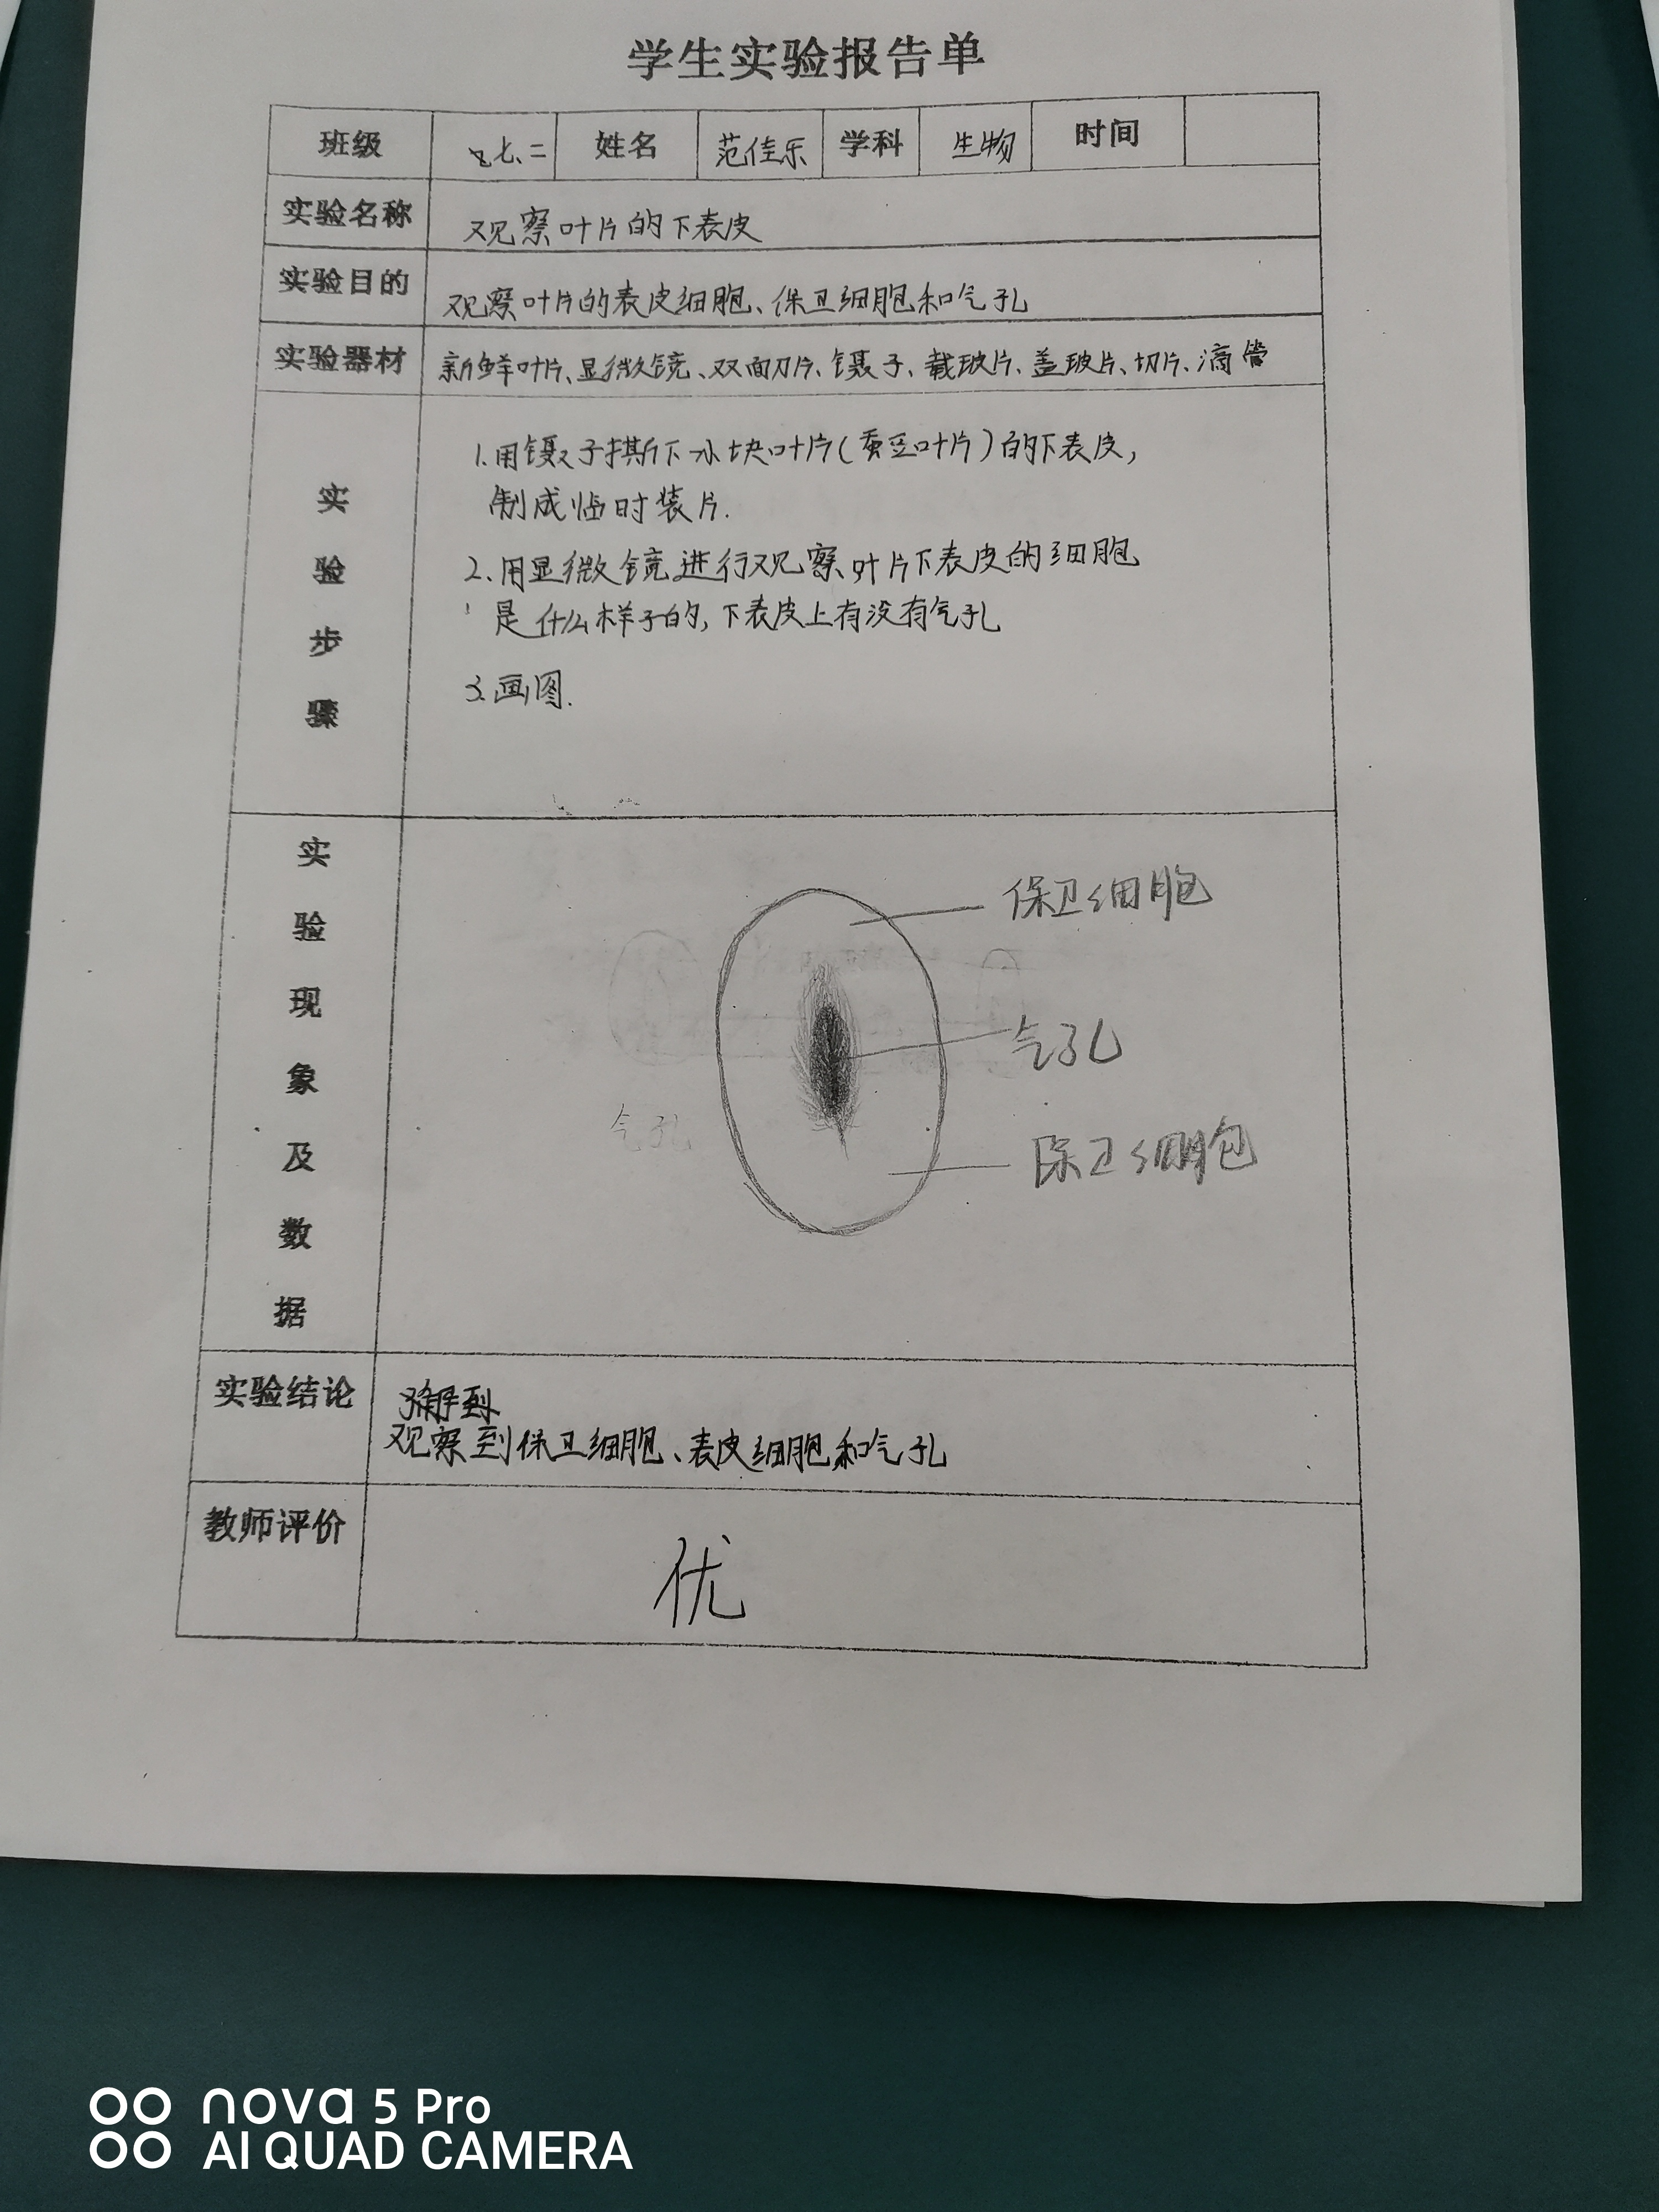 学生实验报告单
班级 七.二 姓名 范佳乐 学科 生物 时间
实验名称 观察叶片的下表皮
实验目的 观察叶片的表皮细胞、保卫细胞和气孔
实验器材 新鲜叶片、显微镜、双面刀片、镊子、载玻片、盖玻片、切片、滴管
实验步骤
1.用镊子撕下小块叶片(蚕豆叶片)的下表皮,
制成临时装片.
2.用显微镜进行观察叶片下表皮的细胞
是什么样子的,下表皮上有没有气孔
3.画图.
实验现象及数据
保卫细胞
气孔
气孔
保卫细胞
实验结论
观察到保卫细胞、表皮细胞和气孔
教师评价
优
nova 5 Pro
AI QUAD CAMERA